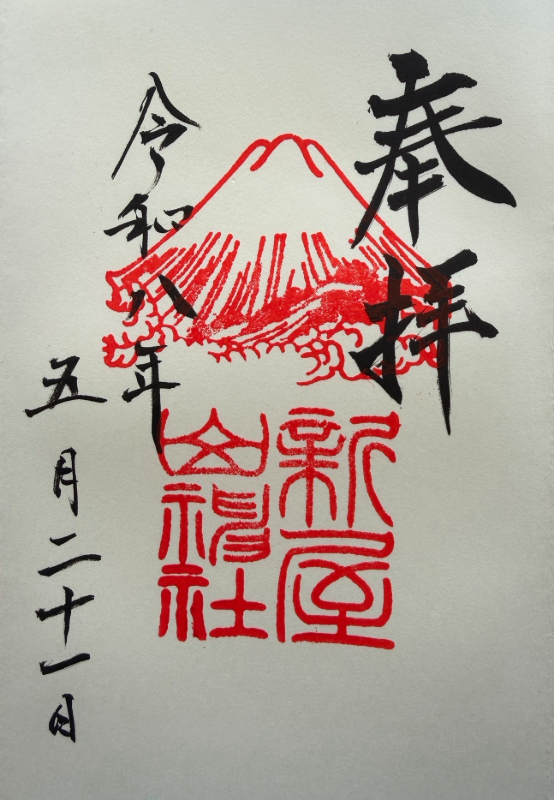 奉拝
新屋
山神社
令和八年
五月二十一日